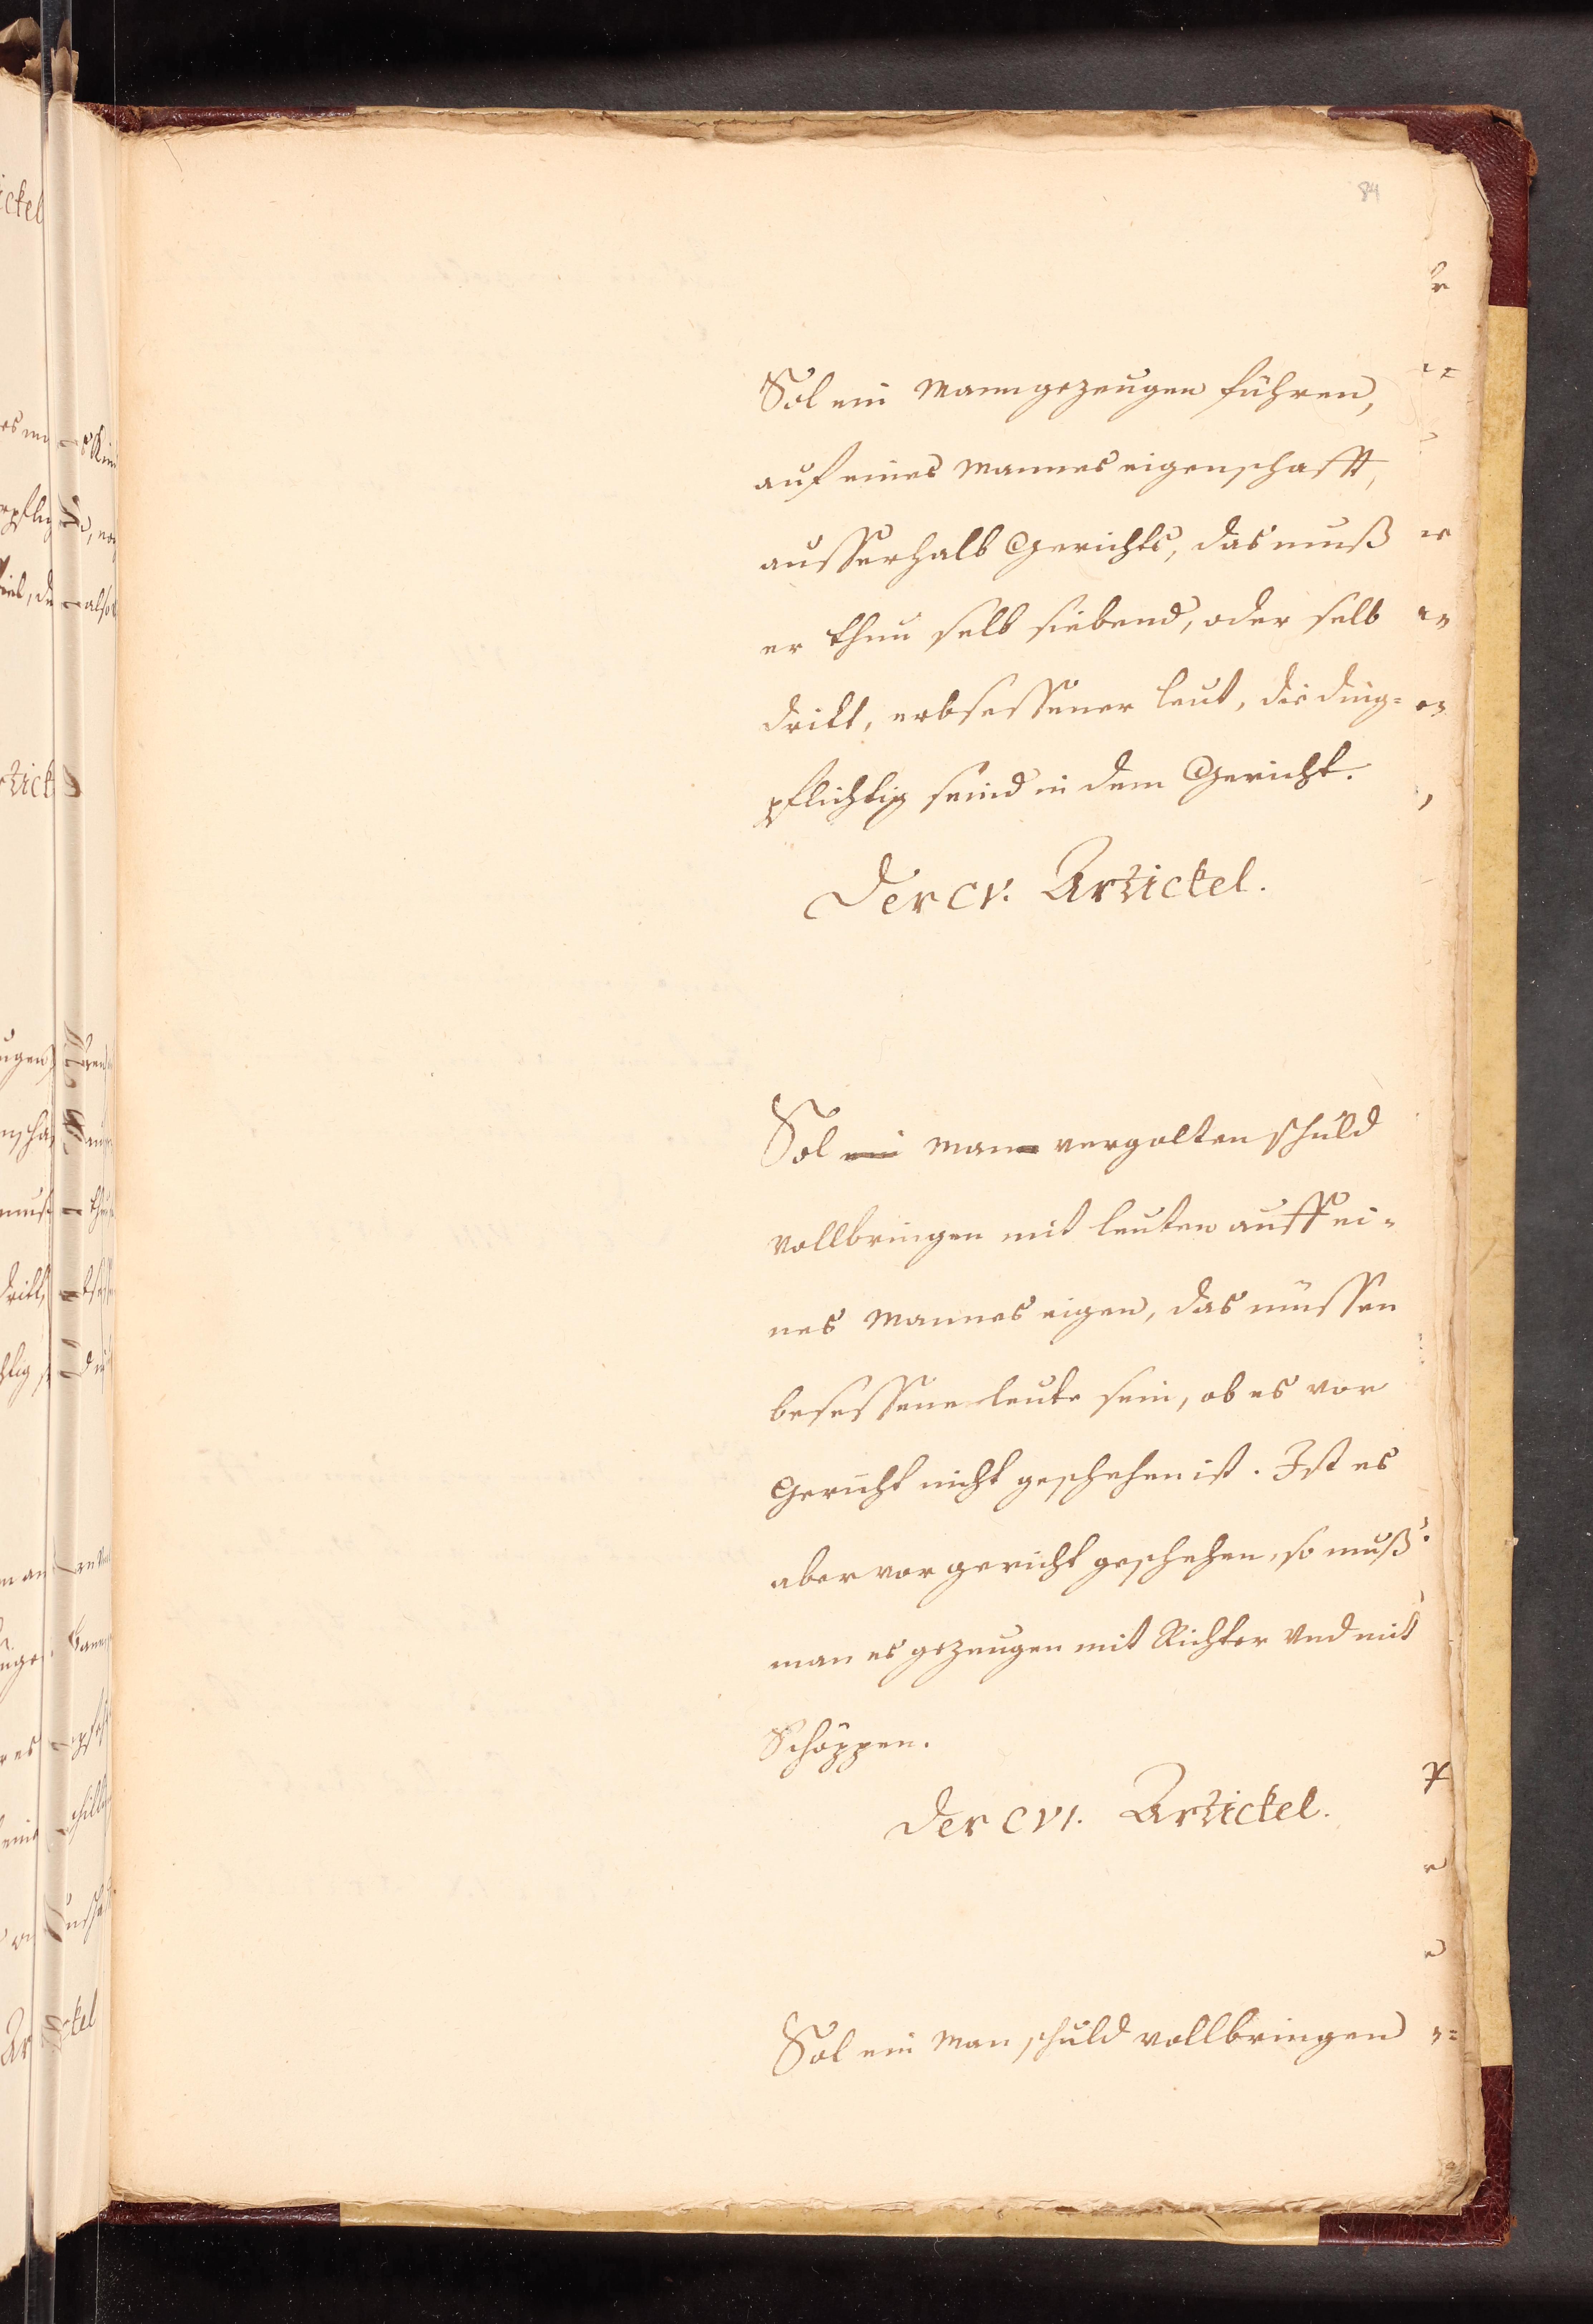 84
Sol ein Mann gezeugen führen,
auf eines Mannes eigenschafft,
ausserhalb Gerichts, das muß
er thun selb siebend, oder selb
dritt, erbsessener leut, die ding=
pflichtig seind in dem Gericht.
Der CV. Artickel.
Sol ein Mann vergolten schuld
vollbringen mit leuten auff ei=
nes Mannes eigen, das müssen
besessene leute sein, ob es vor
Gericht nicht geschehen ist. Ist es
aber vor gericht geschehen, so muß
man es gezeugen mit Richter und mit
Schöppen.
Der CVI. Artickel.
Sol ein Man schuld vollbringen